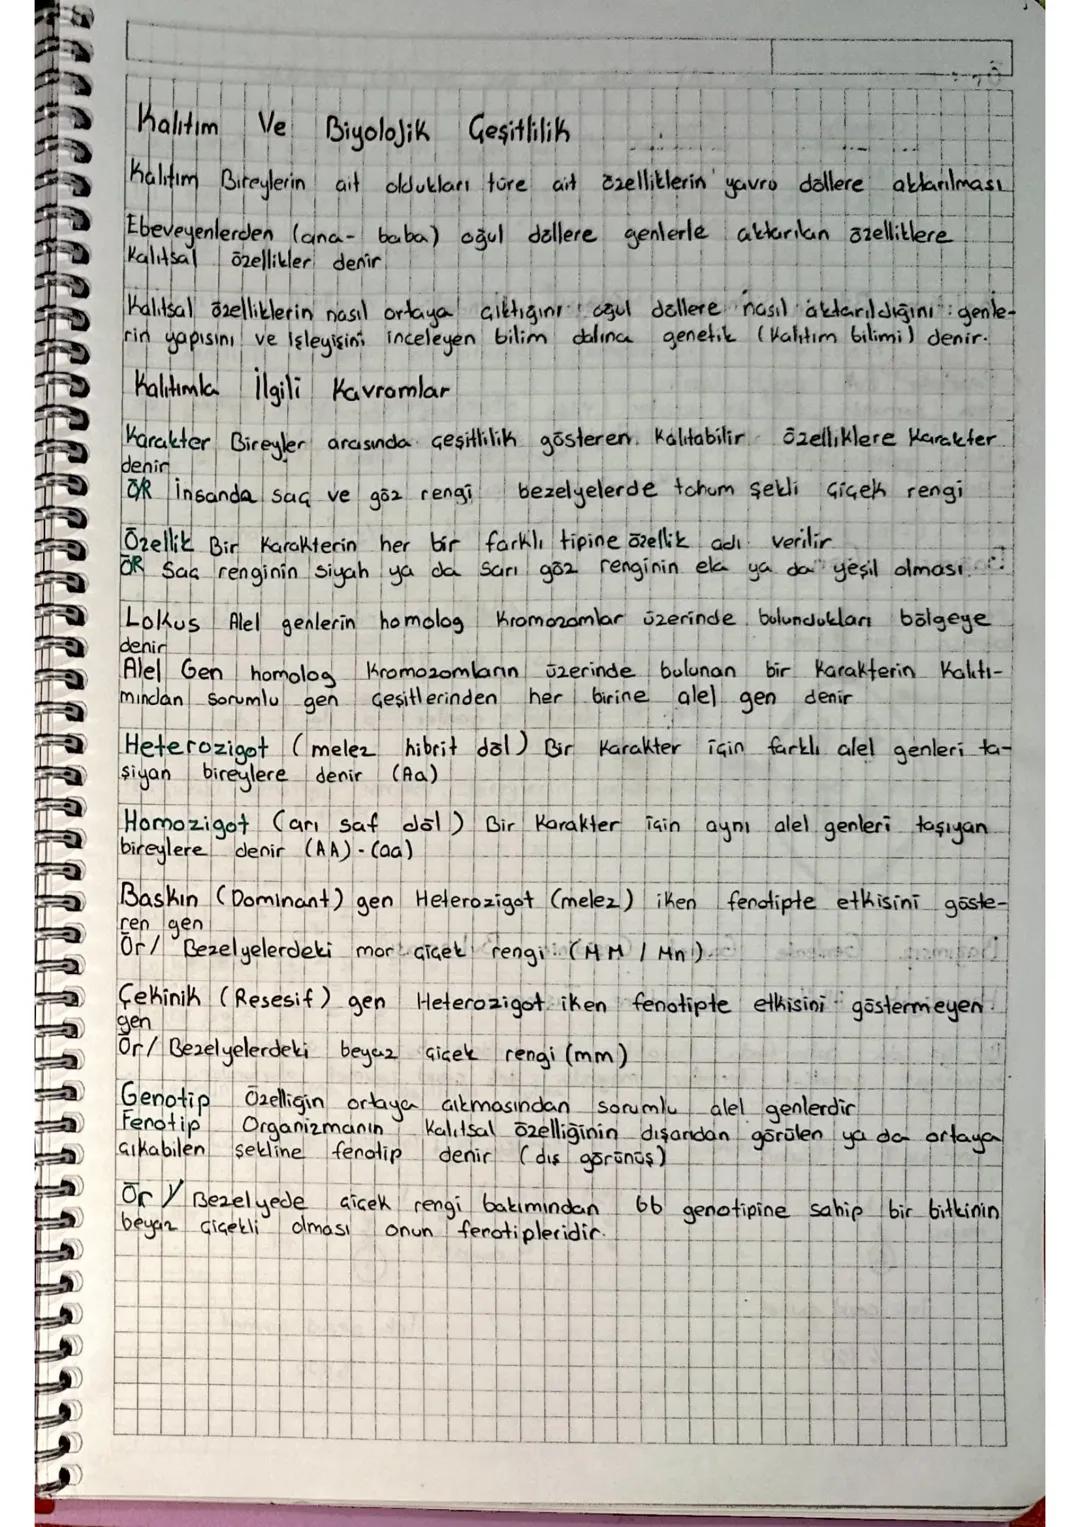 Kalıtım Ve Biyolojik Çeşitlilik
Kalıtım Bireylerin ait oldukları türe ait özelliklerin yavru döllere aktarılması
Ebeveyenlerden (ana- baba) oğul döllere genlerle aktarılan özelliklere
Kalıtsal özellikler denir
Kalıtsal özelliklerin nasıl ortaya çıktığını oğul döllere nasıl aktarıldığını genle-
rin yapısını ve İşleyişini inceleyen bilim dalına genetik (Kalıtım bilimi) denir.
Kalıtımla İlgili Kavramlar
Karakter Bireyler arasında çeşitlilik gösteren Kalıtabilir özelliklere Karakter
denir
ÖR İnsanda saç ve göz rengi bezelyelerde tohum şekli çiçek rengi
Özellik Bir Karakterin her bir farklı tipine özellik adı verilir
ÖR Saç renginin siyah ya da sarı göz renginin ela ya da yeşil olması
Lokus Alel genlerin homolog Kromozomlar üzerinde bulundukları bölgeye
denir
Alel Gen homolog Kromozomların üzerinde bulunan bir Karakterin Kalıtı-
mından sorumlu gen çeşitlerinden her birine alel gen denir
Heterozigot (melez hibrit döl) Bir Karakter için farklı alel genleri ta-
şiyan bireylere denir (Aa)
Homozigot (arı saf döl) Bir Karakter için aynı alel genleri taşıyan
bireylere denir (AA)-(aa)
Baskın (Dominant) gen Heterozigot (melez) iken fenotipte etkisini göste-
ren gen
Ör/ Bezelyelerdeki mor çiçek rengi (MM / Mn)
Çekinik (Resesif) gen Heterozigot iken fenotipte etkisini göstermeyen
gen
Ör/ Bezelyelerdeki beyaz çiçek rengi (mm)
Genotip Özelliğin ortaya çıkmasından sorumlu alel genlerdir
Fenotip Organizmanın Kalıtsal özelliğinin dışarıdan görülen ya da ortaya
çıkabilen şekline fenotip denir (dış görünüş)
Ör/ Bezelyede çiçek rengi bakımından bb genotipine sahip bir bitkinin
beyaz çiçekli olması onun fenotipleridir.